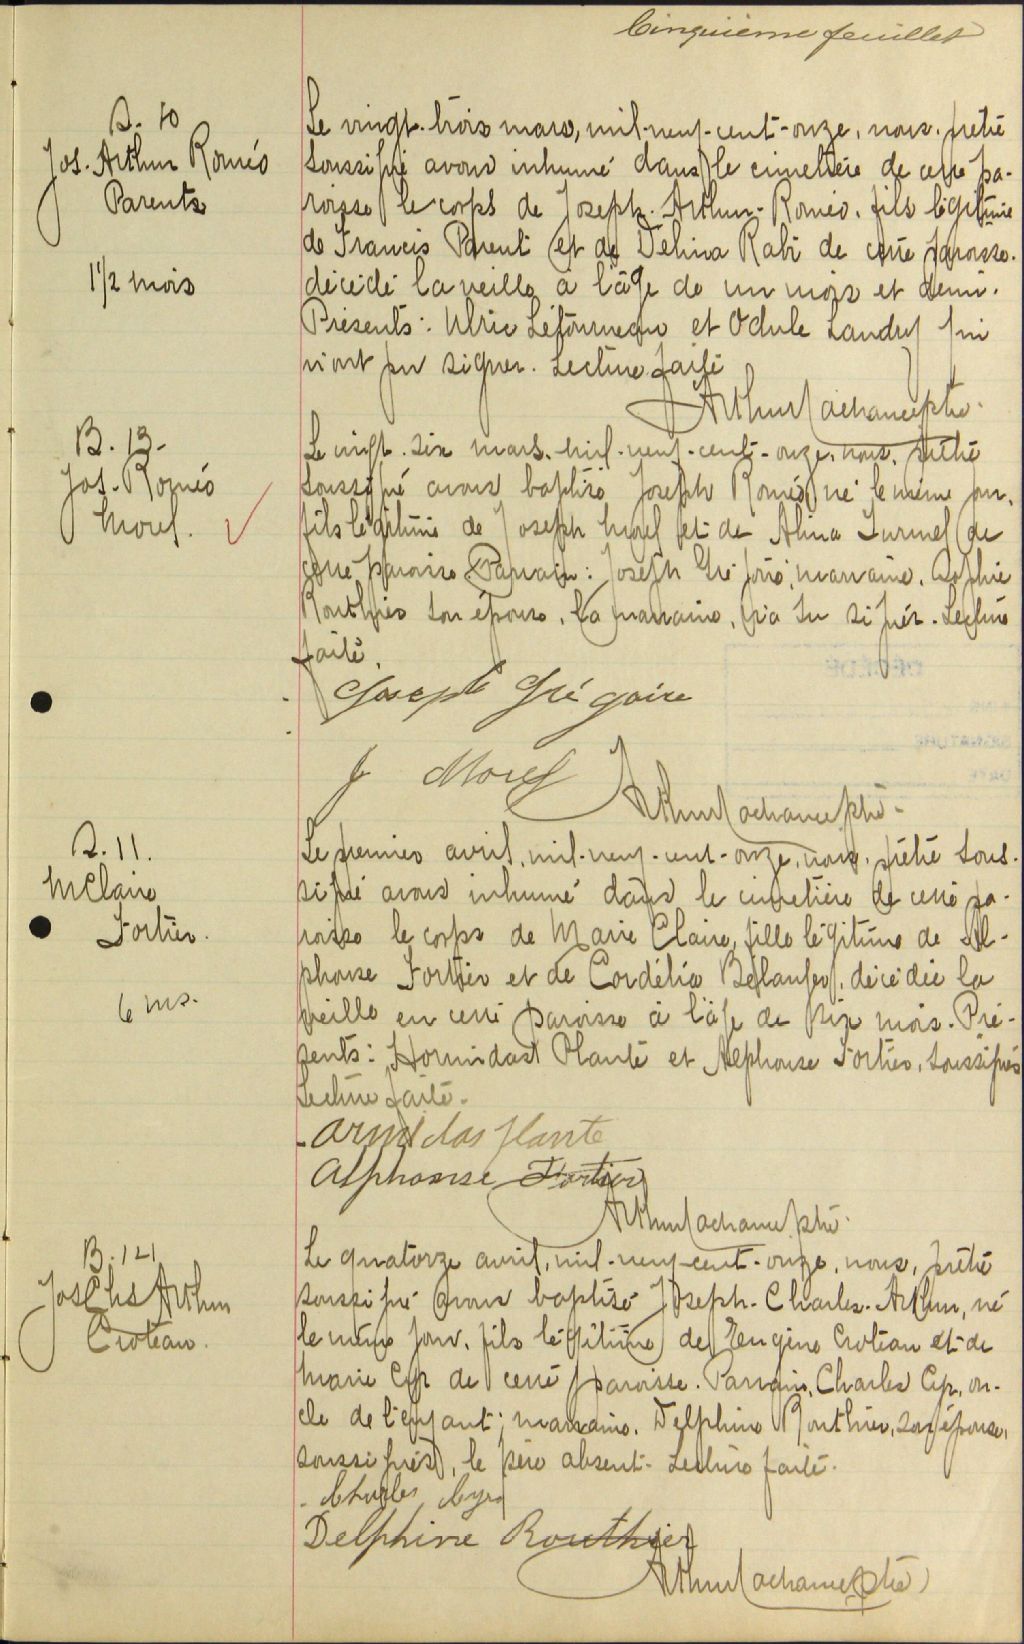 Cinquième feuillet
S. 10
Jos. Arthur Roméo
Parents
1 1/2 mois
Le vingt-trois mars, mil-neuf-cent-onze, nous, prêtre
soussigné avons inhumé dans le cimetière de cette pa-
roisse le corps de Joseph-Arthur-Roméo, fils légitime
de Francis Parent et de Délina Rabi de cette paroisse.
décédé la veille à l'âge de un mois et demi.
Présents: Ulric Létourneau et Odule Landry qui
n'ont pu signer. Lecture faite
Arthur Lachance ptre.
B. 13-
Jos. Roméo
Morel.
Le vingt-six mars, mil-neuf-cent-onze, nous, prêtre
soussigné avons baptisé Joseph Roméo, né le même jour,
fils légitime de Joseph Morel et de Alma Turmel de
cette paroisse Parrain: Joseph Grégoire, marraine, Sophie
Routhier son épouse, la marraine, n'a su signer. Lecture
faite.
Joseph Grégoire
J Morel
Arthur Lachance ptre-
S. 11.
M Claire
Fortier.
6 ms.
Le premier avril, mil-neuf-cent-onze, nous, prêtre sous-
signé avons inhumé dans le cimetière de cette pa-
roisse le corps de Marie Claire, fille légitime de Al-
phonse Fortier et de Cordélia Bélanger, décédée la
veille en cette paroisse à l'âge de six mois. Pré-
sents: Hormidas Planté et Alphonse Fortier, soussignés
Lecture faite.
Armidas plante
Alphonse Fortier
Arthur Lachance ptre.
B. 14
Jos Chs Arthur
Croteau.
Le quatorze avril, mil-neuf-cent-onze, nous, prêtre
soussigné avons baptisé Joseph-Charles-Arthur, né
le même jour, fils légitime de Eugène Croteau et de
Marie Cyr de cette paroisse. Parrain, Charles Cyr, on-
cle de l'enfant; marraine, Delphine Routhier, son épouse,
soussignés, le père absent. Lecture faite.
Charles Cyr
Delphine Routhier
Arthur Lachance ptre